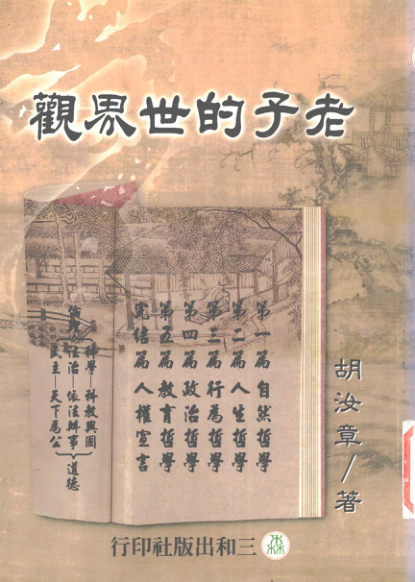 老子的世界觀
胡汝章／著
第一篇 自然哲學
第二篇 人生哲學
第三篇 行為哲學
第四篇 政治哲學
第五篇 教育哲學
完結篇 人權宣言
科學—科教興國
法治—依法辦事
民主—天下為公
道德
三和出版社印行